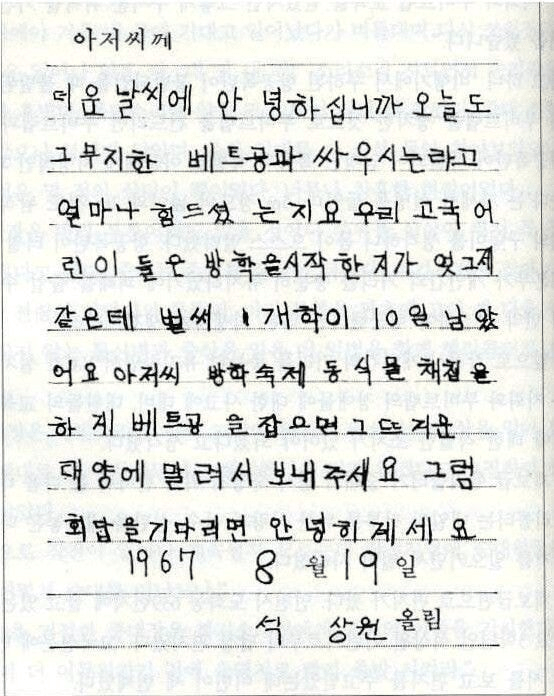 아저씨께
더운 날씨에 안녕하십니까 오늘도
그 무지한 베트콩과 싸우시는라고
얼마나 힘드셨는지요 우리 고국 어
린이들은 방학을 시작한지가 엊그제
같은데 벌써 개학이 10일 남았
어요 아저씨 방학숙제 동식물 채집을
하게 베트콩을 잡으면 그 뜨거운
태양에 말려서 보내주세요 그럼
회답을 기다리면 안녕히 계세요
1967 8월 19일
석 상원 올림